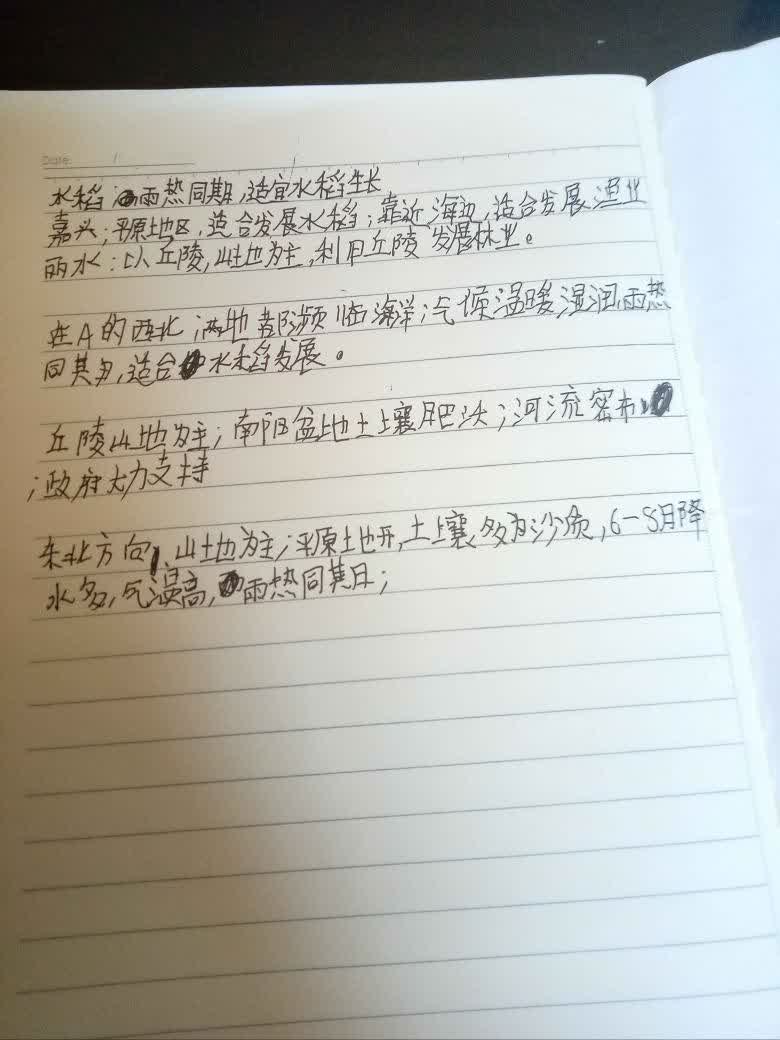 Date: /
水稻;雨热同期,适宜水稻生长
嘉兴;平原地区,适合发展水稻;靠近海边,适合发展渔业
丽水:以丘陵,山地为主,利用丘陵 发展林业。
在A的西北;两地都濒临海洋;气候温暖湿润,雨热
同期,适合水稻发展。
丘陵山地为主;南阳盆地土壤肥沃;河流密布
;政府大力支持
东北方向,山地为主;平原地形,土壤多为沙质,6-8月降
水多,气温高,雨热同期;